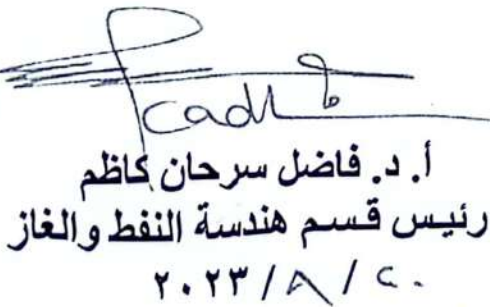 Fadhil
أ. د. فاضل سرحان كاظم
رئيس قسم هندسة النفط والغاز
٢٠٢٣/٨/٢٠